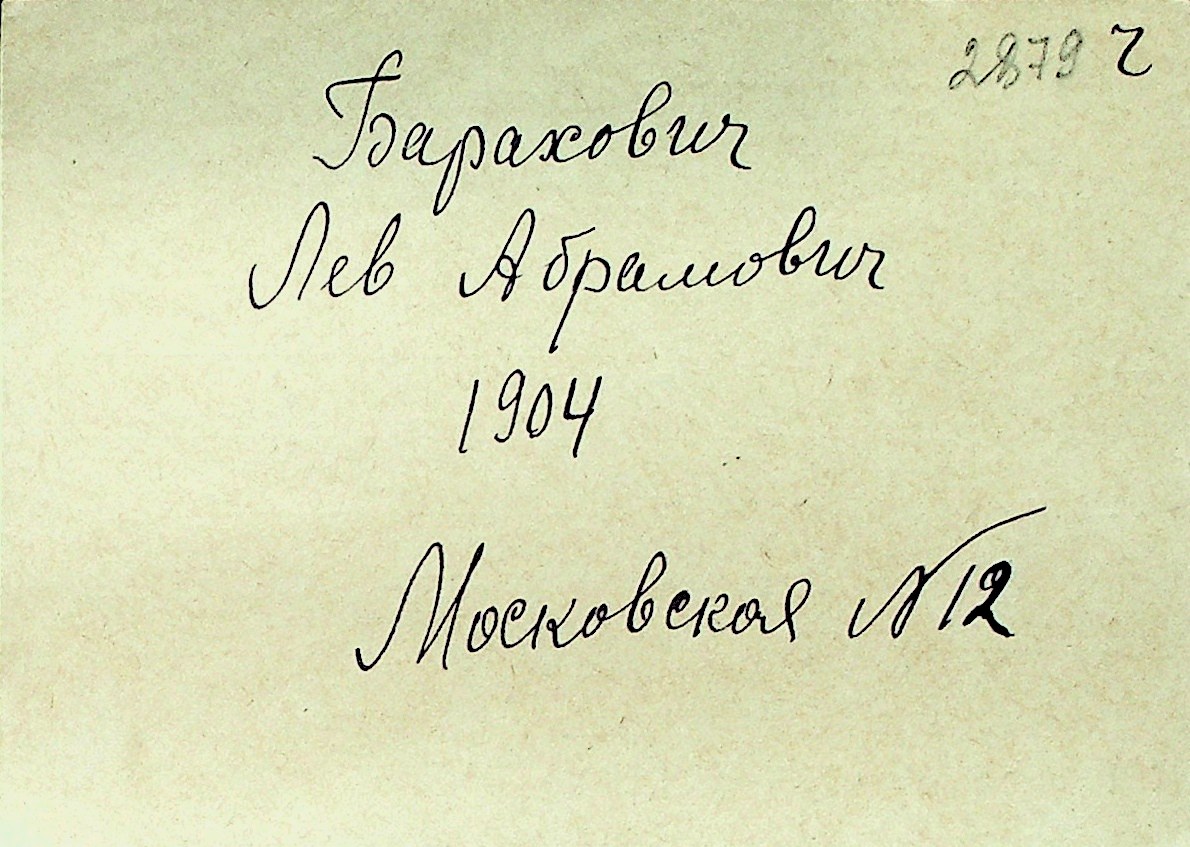 2879 ч
Барахович
Лев Абрамович
1904
Московская N 12